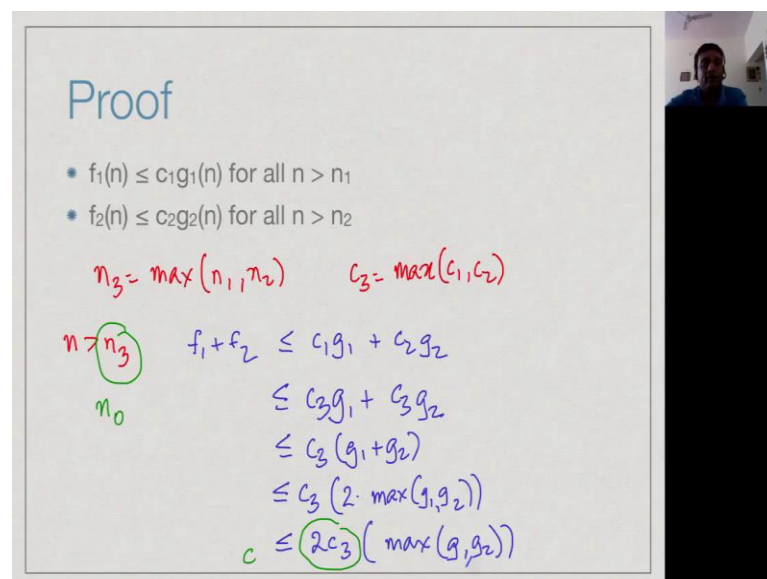 Proof
f₁(n) ≤ c₁g₁(n) for all n > n₁
f₂(n) ≤ c₂g₂(n) for all n > n₂
n₃ = max(n₁, n₂) c₃ = max(c₁, c₂)
n > n₃ f₁ + f₂ ≤ c₁g₁ + c₂g₂
n₀ ≤ c₃g₁ + c₃g₂
≤ c₃(g₁+g₂)
≤ c₃(2· max(g₁,g₂))
c ≤ 2c₃( max(g₁,g₂))